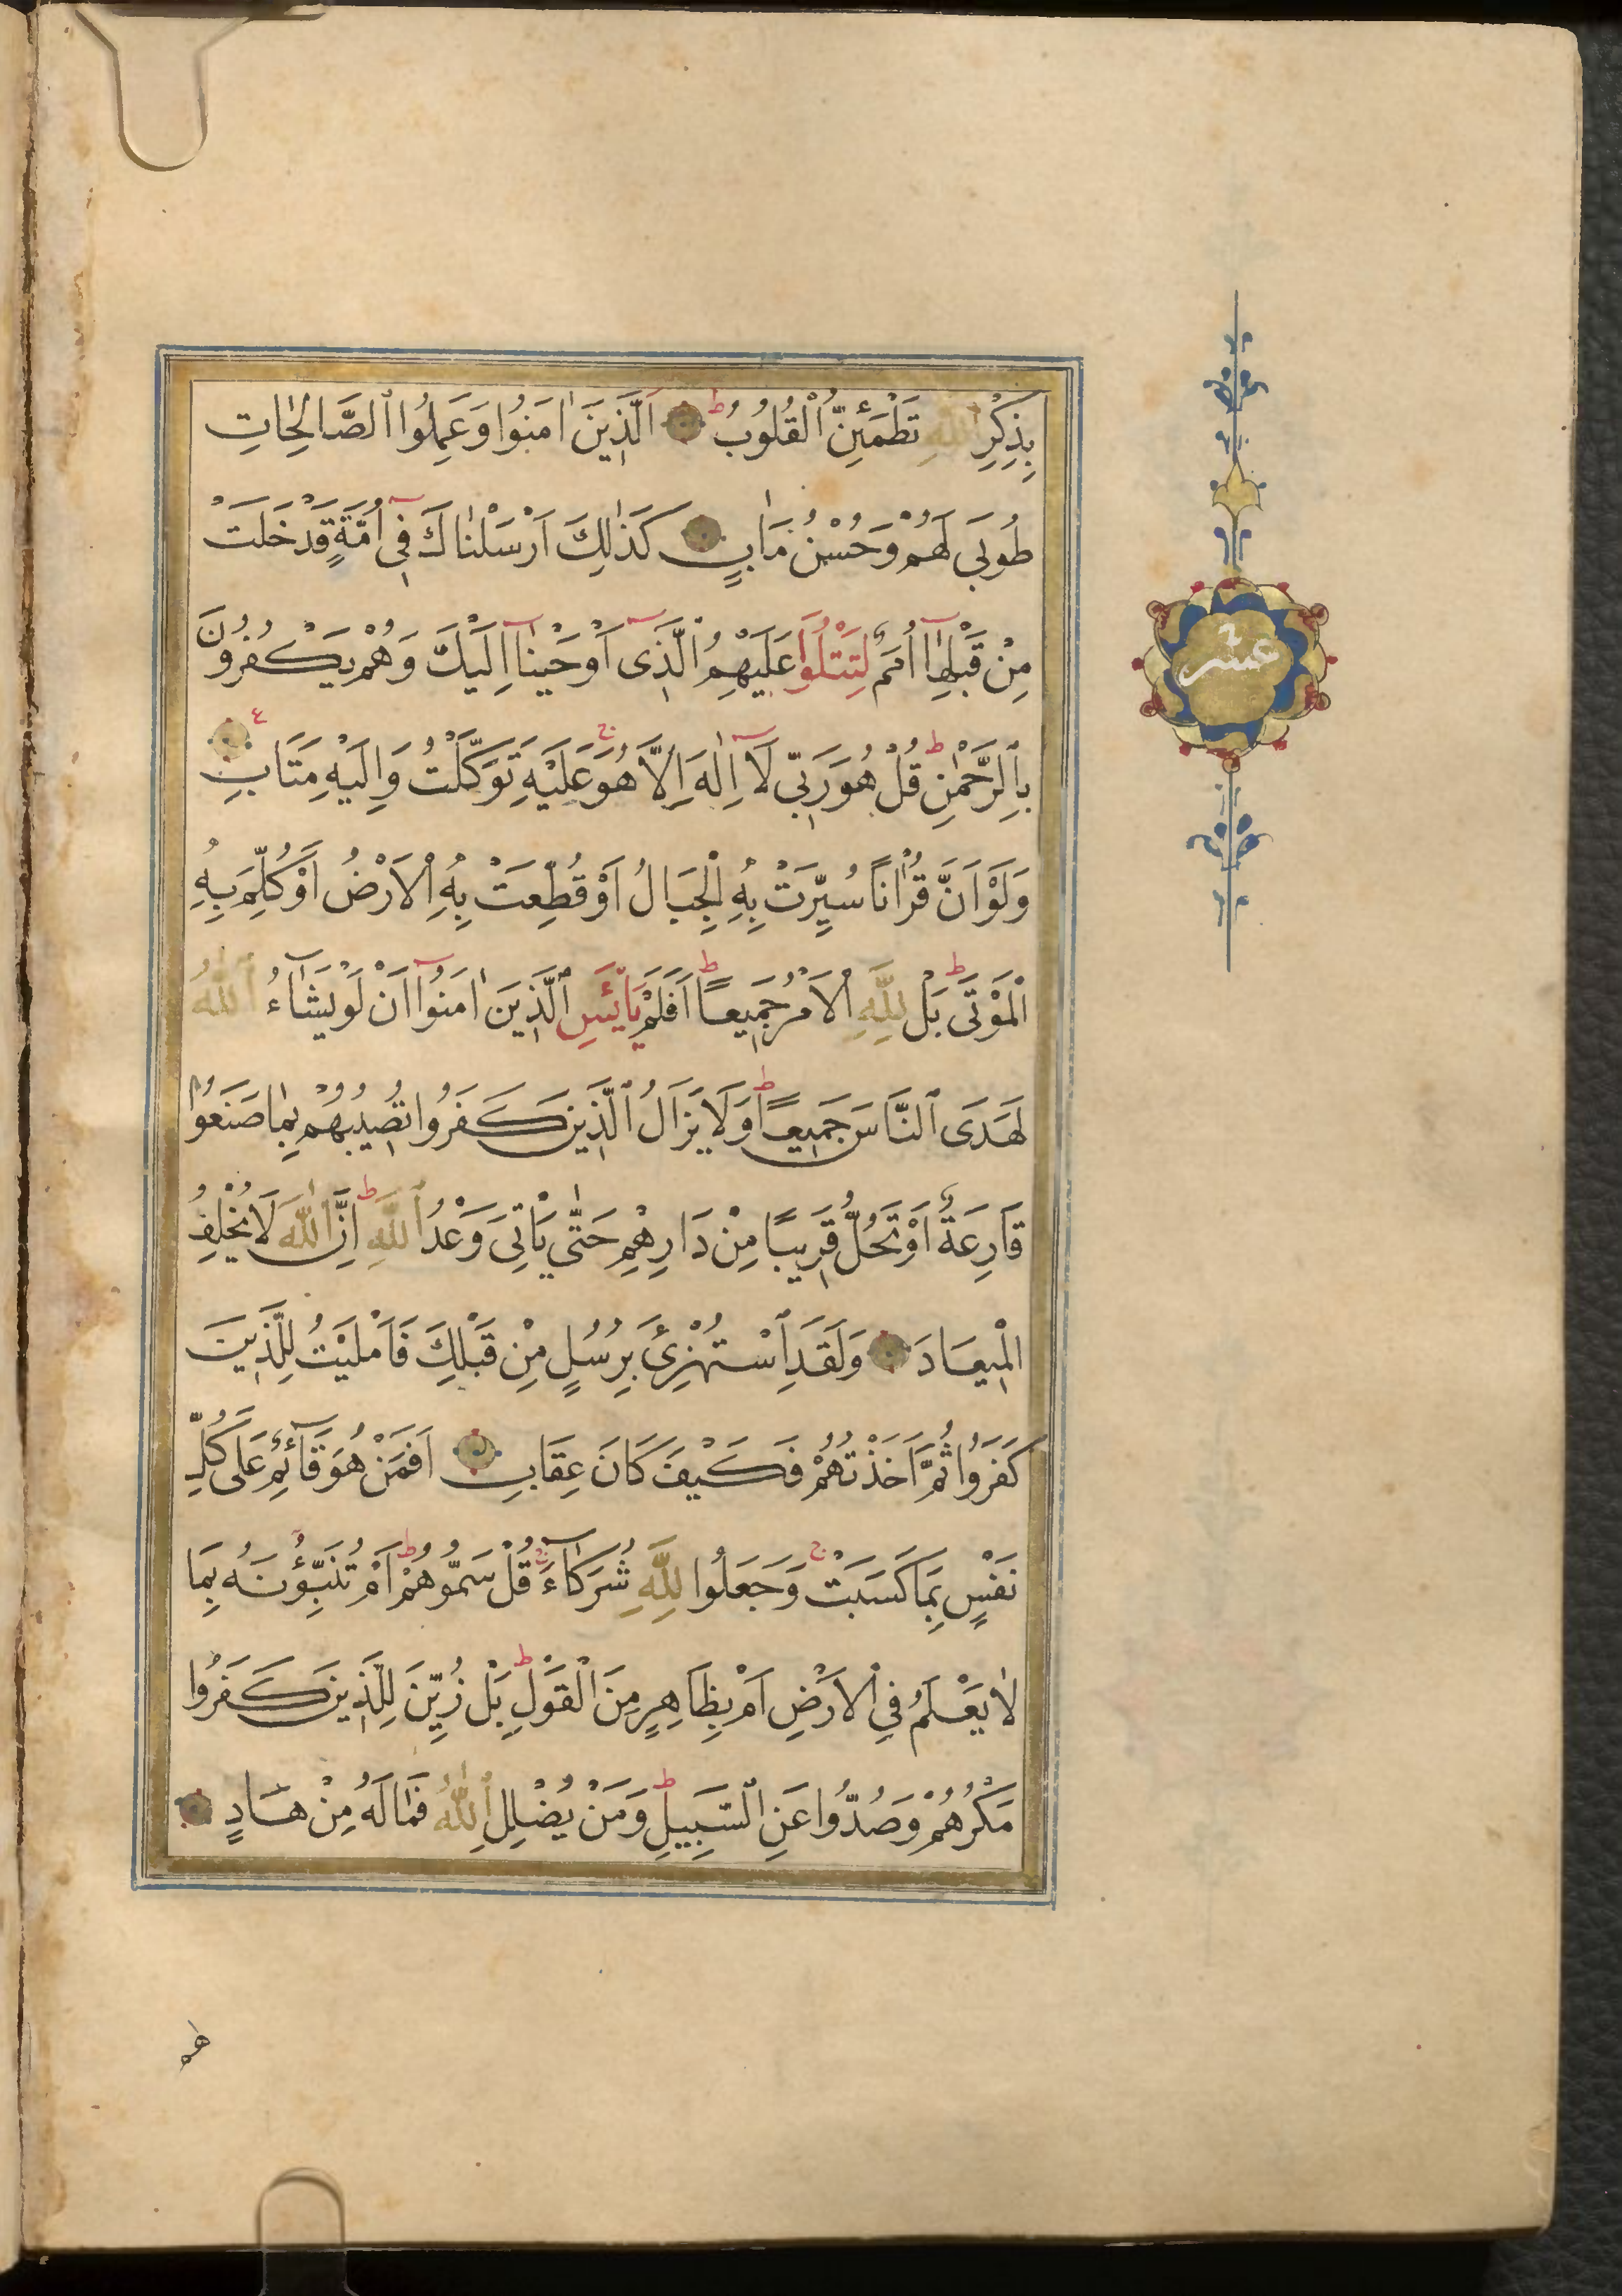 بِذِكْرِ اللّٰهِ تَطْمَئِنُّ الْقُلُوبُ ط اَلَّذِينَ اٰمَنُوا وَعَمِلُوا الصَّالِحَاتِ
طُوبَى لَهُمْ وَحُسْنُ مَاٰبٍ كَذٰلِكَ اَرْسَلْنَاكَ فِى اُمَّةٍ قَدْ خَلَتْ
مِنْ قَبْلِهَا اُمَمٌ لِتَتْلُوَا عَلَيْهِمُ الَّذِى اَوْحَيْنَا اِلَيْكَ وَهُمْ يَكْفُرُونَ
بِالرَّحْمٰنِ ط قُلْ هُوَ رَبِّى لَا اِلٰهَ اِلَّا هُوَ ج عَلَيْهِ تَوَكَّلْتُ وَاِلَيْهِ مَتَابِ ع
وَلَوْ اَنَّ قُرْاٰنًا سُيِّرَتْ بِهِ الْجِبَالُ اَوْ قُطِّعَتْ بِهِ الْاَرْضُ اَوْ كُلِّمَ بِهِ
الْمَوْتَى ط بَلْ لِلّٰهِ الْاَمْرُ جَمِيعًا ط اَفَلَمْ يَايْئَسِ الَّذِينَ اٰمَنُوا اَنْ لَوْ يَشَاءُ اللّٰهُ
لَهَدَى النَّاسَ جَمِيعًا ط وَلَا يَزَالُ الَّذِينَ كَفَرُوا تُصِيبُهُمْ بِمَا صَنَعُوا
قَارِعَةٌ اَوْ تَحُلُّ قَرِيبًا مِنْ دَارِهِمْ حَتّٰى يَاْتِىَ وَعْدُ اللّٰهِ ط اِنَّ اللّٰهَ لَا يُخْلِفُ
الْمِيعَادَ وَلَقَدِ اسْتُهْزِئَ بِرُسُلٍ مِنْ قَبْلِكَ فَاَمْلَيْتُ لِلَّذِينَ
كَفَرُوا ثُمَّ اَخَذْتُهُمْ فَكَيْفَ كَانَ عِقَابِ اَفَمَنْ هُوَ قَائِمٌ عَلَى كُلِّ
نَفْسٍ بِمَا كَسَبَتْ ج وَجَعَلُوا لِلّٰهِ شُرَكَاءَ قُلْ سَمُّوهُمْ ط اَمْ تُنَبِّؤُنَهُ بِمَا
لَا يَعْلَمُ فِى الْاَرْضِ اَمْ بِظَاهِرٍ مِنَ الْقَوْلِ ط بَلْ زُيِّنَ لِلَّذِينَ كَفَرُوا
مَكْرُهُمْ وَصُدُّوا عَنِ السَّبِيلِ ط وَمَنْ يُضْلِلِ اللّٰهُ فَمَا لَهُ مِنْ هَادٍ
عشر
لهم